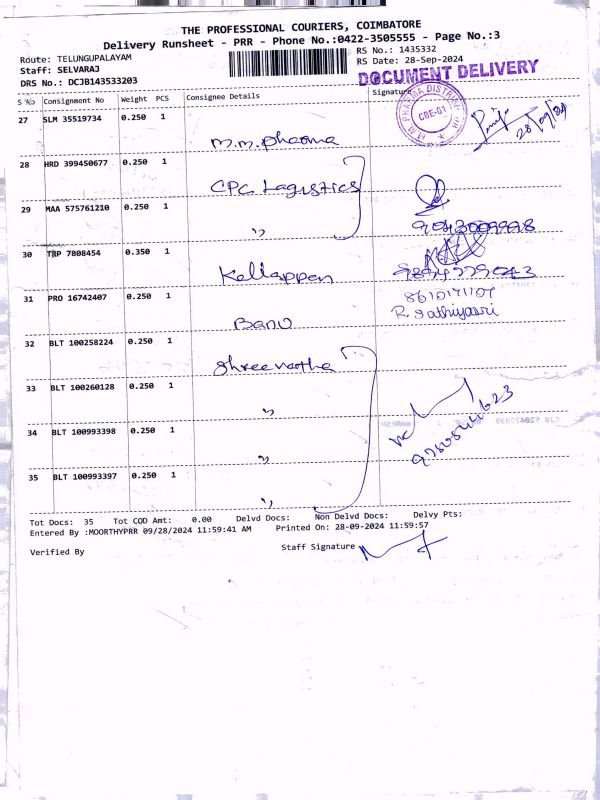 THE PROFESSIONAL COURIERS, COIMBATORE
Delivery Runsheet - PRR - Phone No.:0422-3505555 - Page No.:3
Route: TELUNGUPALAYAM
Staff: SELVARAJ
DRS No.: DCJB143533203
RS No.: 1435332
RS Date: 28-Sep-2024
DOCUMENT DELIVERY
S No Consignment No Weight PCS Consignee Details Signature
27 SLM 35519734 0.250 1
M.M. PHARMA DISTRIBUTOR
CBE-01
28/09/24
m.m. pharma
28 HRD 399450677 0.250 1
CPC Lagistics
29 MAA 575761210 0.250 1
"
30 TRP 7808454 0.350 1
Kallappan
31 PRO 16742407 0.250 1
8610171107
R. Sathiyasri
Banu
32 BLT 100258224 0.250 1
Shree vastha
33 BLT 100260128 0.250 1
"
34 BLT 100993398 0.250 1
"
35 BLT 100993397 0.250 1
"
Tot Docs: 35 Tot COD Amt: 0.00 Delvd Docs: Non Delvd Docs: Delvy Pts:
Entered By :MOORTHYPRR 09/28/2024 11:59:41 AM Printed On: 28-09-2024 11:59:57
Verified By Staff Signature